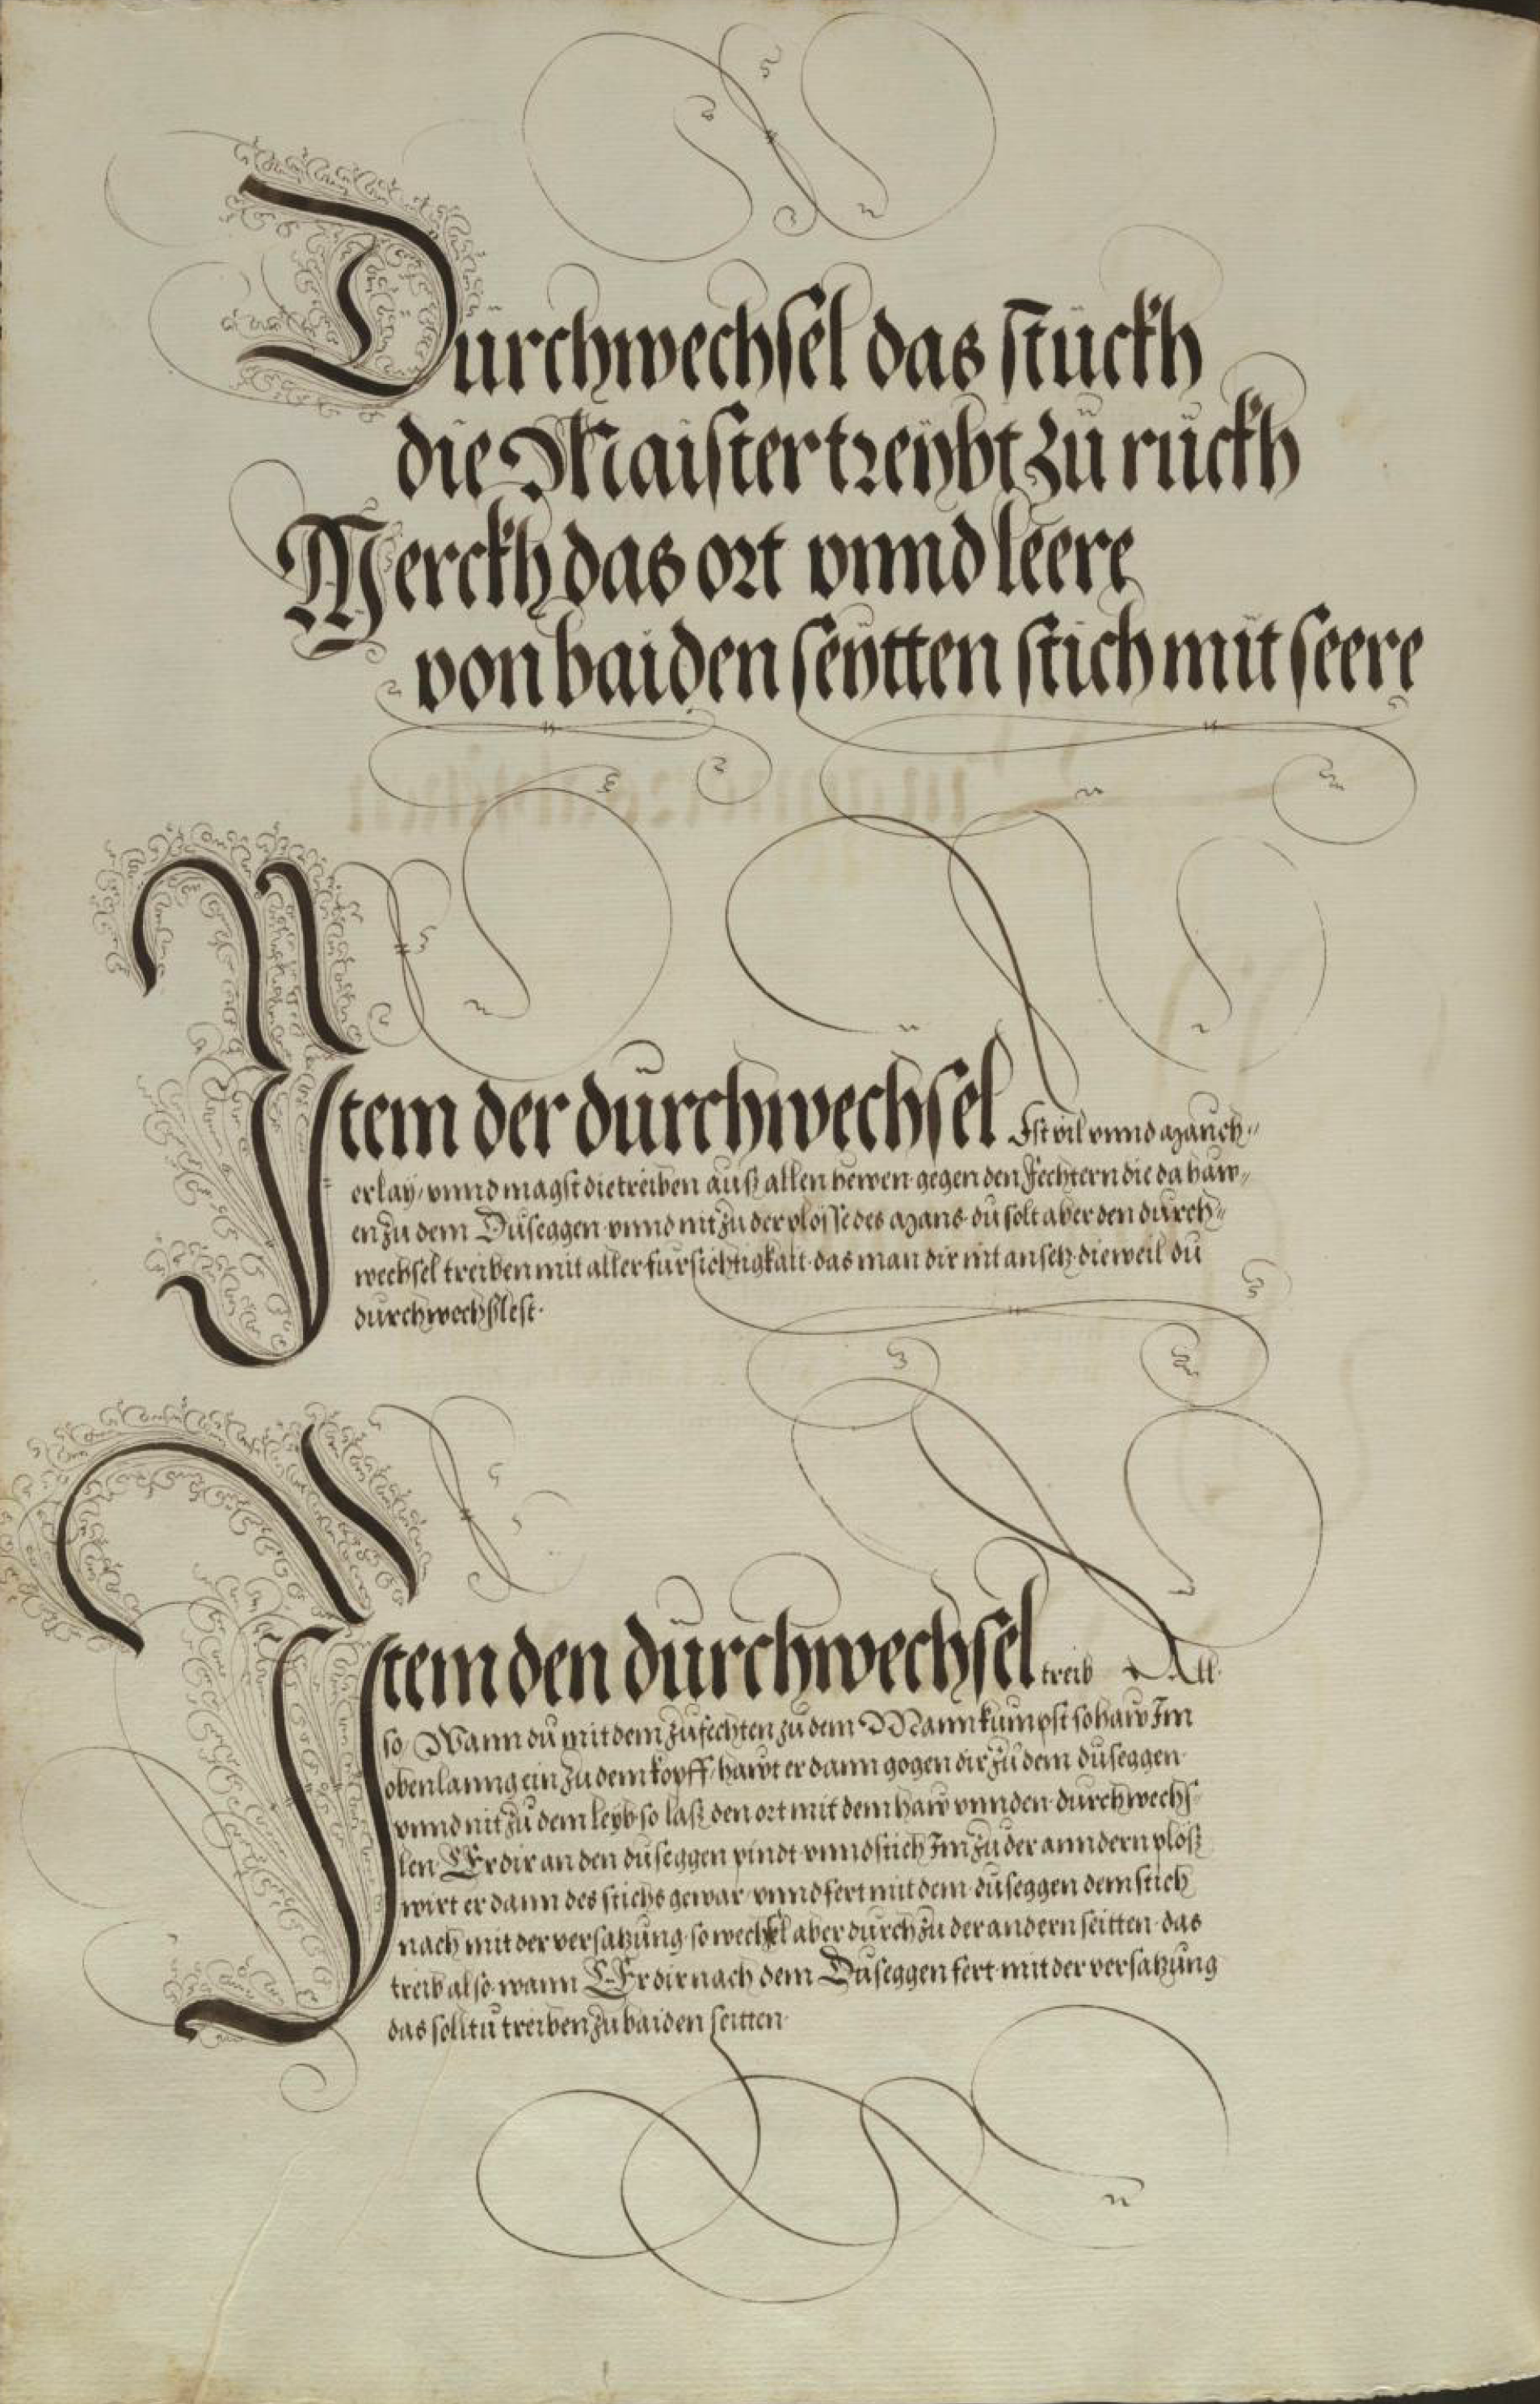 Durchwechsel das stuckh
die Maister treybt zu ruckh
Merckh das ort vnnd leere
von baiden seytten stich mit seere
Jtem der durchwechsel Ist vil vnnd manch„
erlay, vnnd magst die treiben auß allen hewen gegen den Fechtern die da haw„
en zu dem Duseggen vnnd nit zu der plosse des mans du solt aber den durch„
wechsel treiben mit aller fursichtigkait das man dir nit ansetz dieweil du
durchwechslest.
Jtem den durchwechsel treib All
so Wann du mit dem zufechten zu dem Mann kumpst so haw Im
oben lanng ein zu dem kopff, hawt er dann gogen dir zu dem duseggen
vnnd nit zu dem leyb so laß den ort mit dem haw vnnden durchwechs„
len Er dir an den duseggen pindt vnnd stich Im zu der anndern ploß
wirt er dann des stichs gewar vnnd fert mit dem duseggen dem stich
nach mit der versatzung so wechsel aber durch zu der andern seitten das
treib also wann Er dir nach dem Duseggen fert mit der versatzung
das solltu treiben zu baiden seitten.